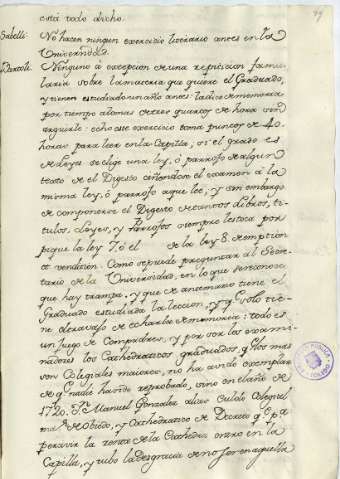 está todo dicho.
99
Sabelli: No hacen ningun exercicio literario antes en la
Universidad.
Bartoli: Ninguno à excepcion de una repeticion formu-
laria sobre la materia que quiere el Graduado,
y tienen estudiado un año antes: la dice de memoria
por tiempo a lo mas de tres quartos de hora sin
arguirle: echo este exercicio toma puntos de 40
horas para leer en la Capilla, si el grado es
de Leyes se elige una ley, ó parrafo de algun
texto de el Digesto ciñendose el examen á la
misma ley, ó parrafo que lee; y sin embargo
de componerse el Digesto de tantos libros, ti-
tulos, Leyes, y Parrafos siempre les toca por
pique la ley 7. ó el de la ley 8. de emption
et vendition. Como se puede preguntar al Secre-
tario de la Universidad, en lo que se reconoce
que hay trampa, y que de antemano tiene el
Graduado estudiada la leccion, y qᵉ solo tie-
ne el trabajo de echarla de memoria: todo es
un Juego de Compadres, y por ser los exami-
nadores los Cathedraticos graduados, qᵉ los mas
son Colegiales maiores, no ha avido exemplar
de qᵉ nadie haya de reprobado, sino en el año de
1720. Dⁿ. Manuel Gonzalez
ma de Obiedo, y Cathedratico de Decreto qᵉ pᵃ
percivir la renta de la Cathedra entrò en la
Capilla, y tubo la desgracia de no ser en aquella